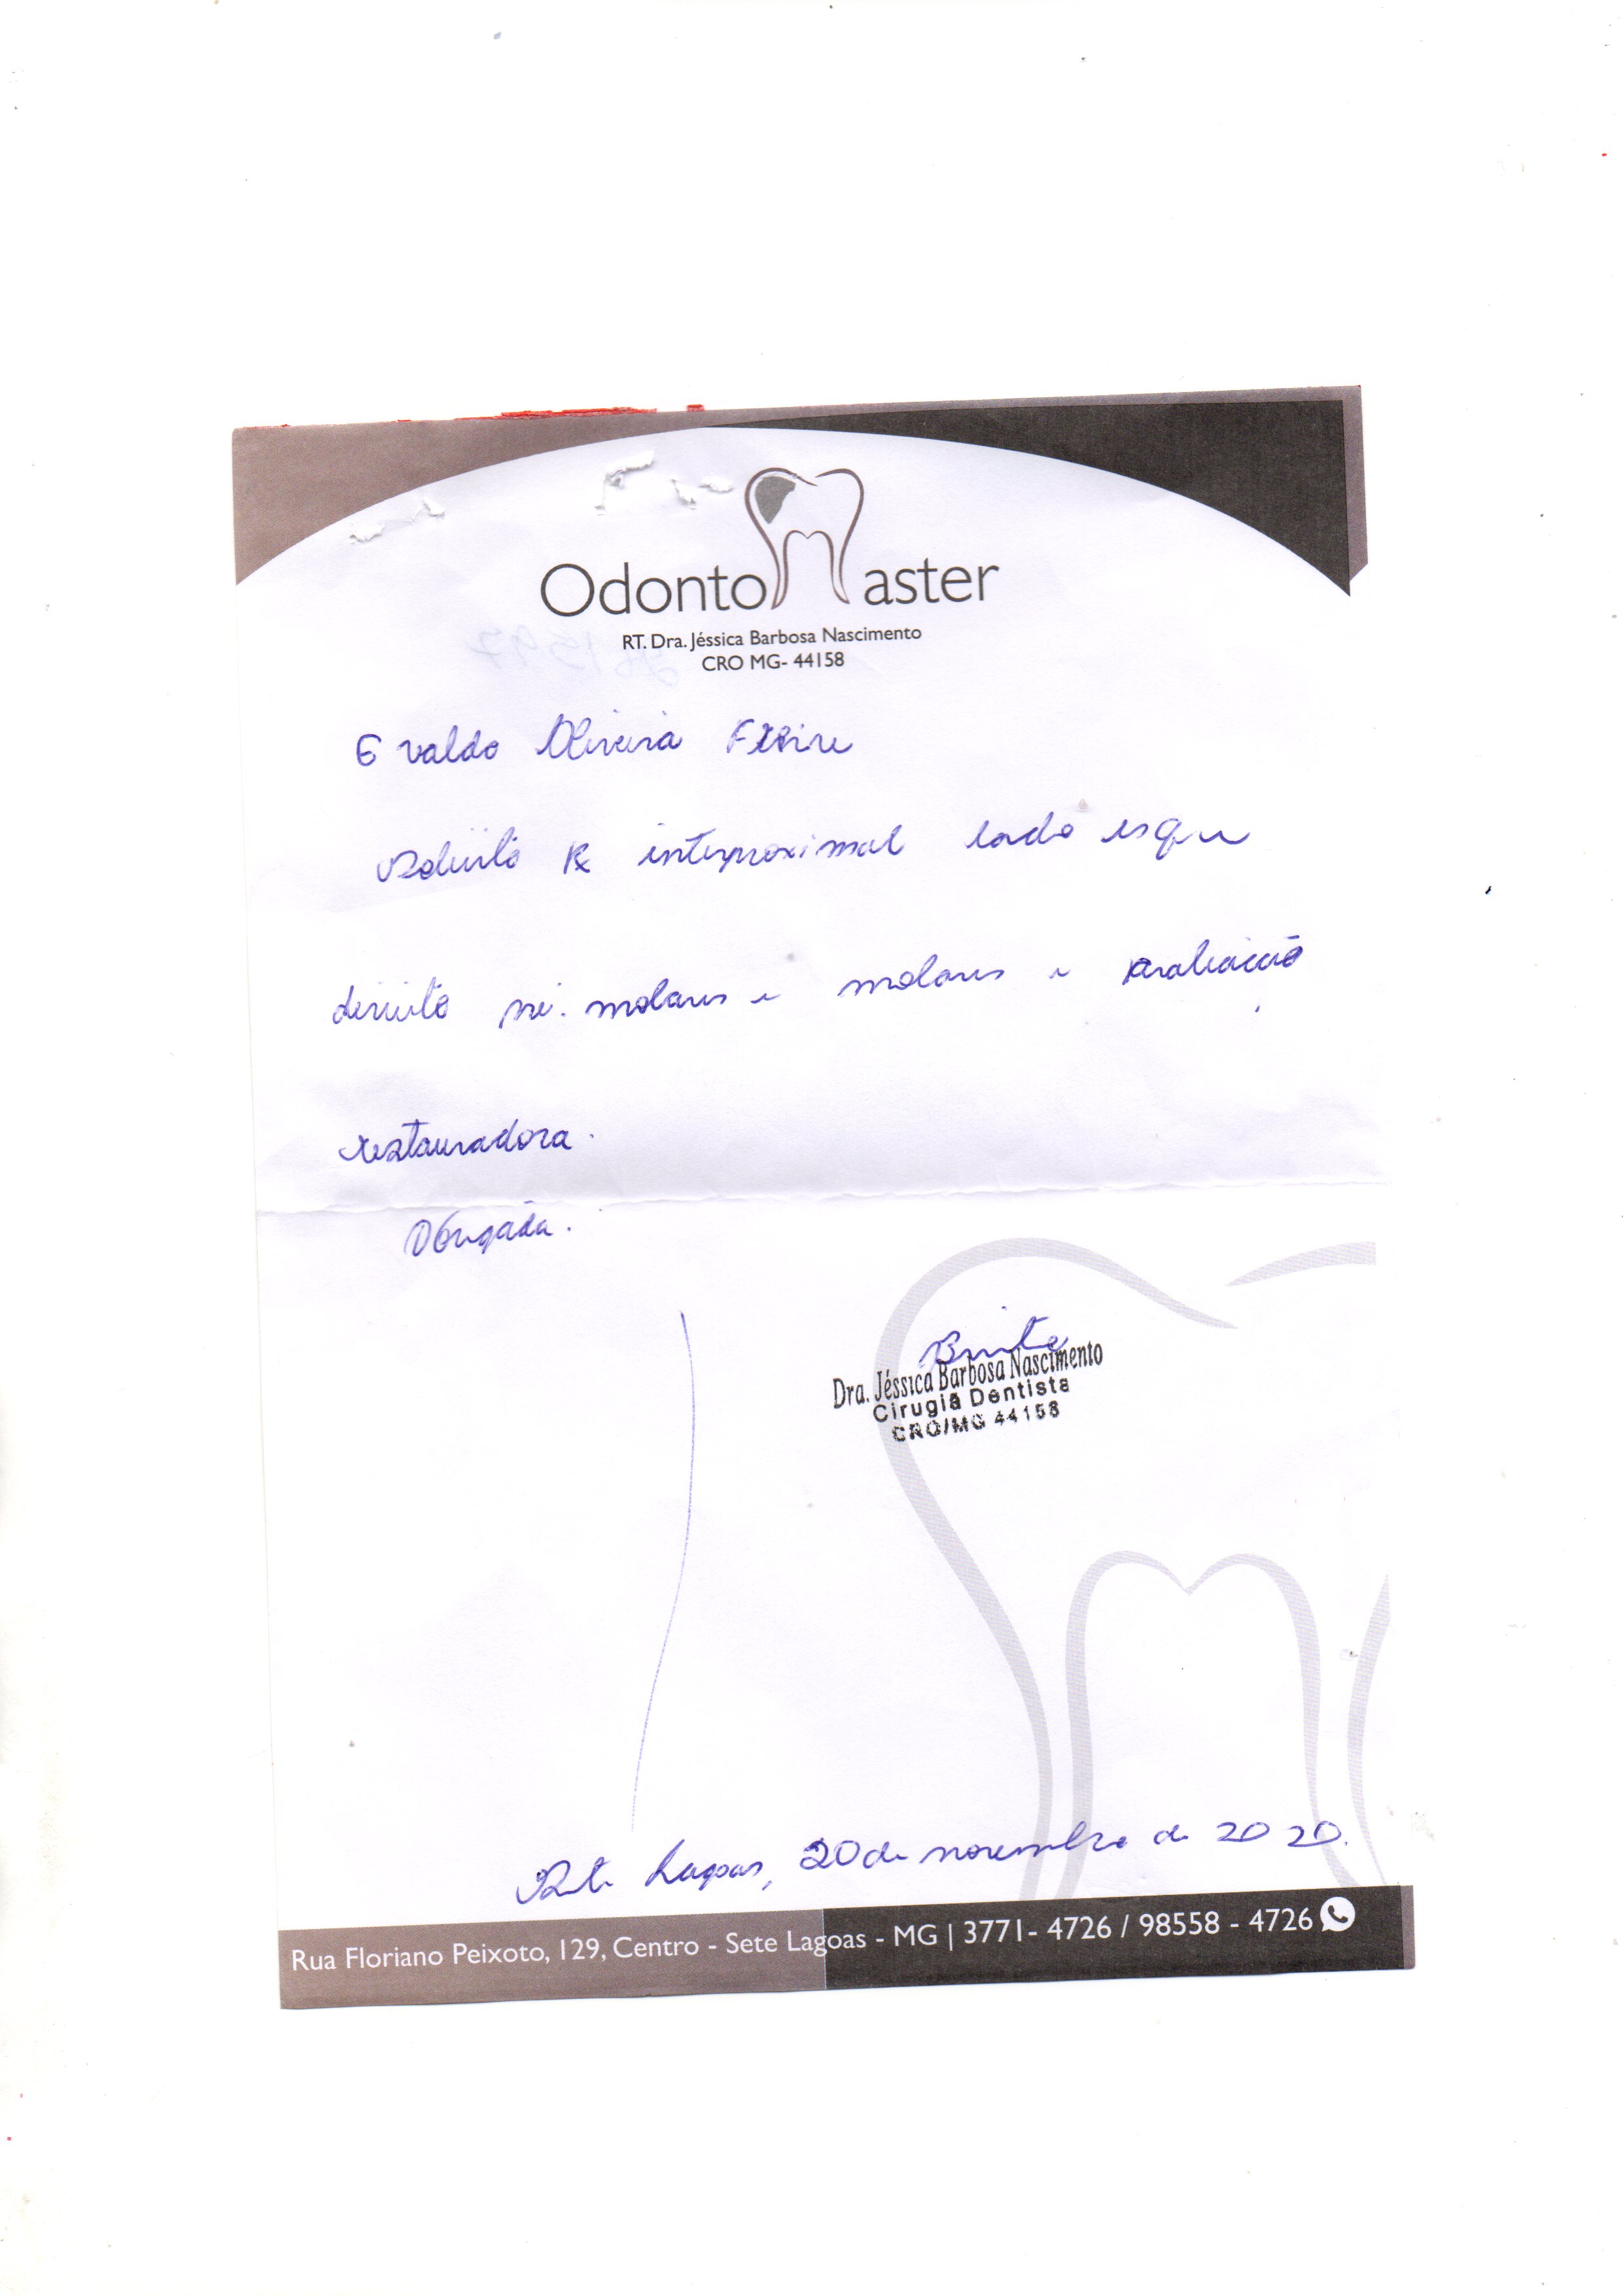 Odonto Master
RT. Dra. Jéssica Barbosa Nascimento
CRO MG- 44158
Evaldo Oliveira Freire
Solicito Rx interproximal lado esqu
direito pré. molares e molares e avaliação
restauradora.
Obrigada.
Dra. Jéssica Barbosa Nascimento
Cirugiã Dentista
CRO/MG 44158
Sete Lagoas, 20 de novembro de 2020.
Rua Floriano Peixoto, 129, Centro - Sete Lagoas - MG | 3771- 4726 / 98558 - 4726